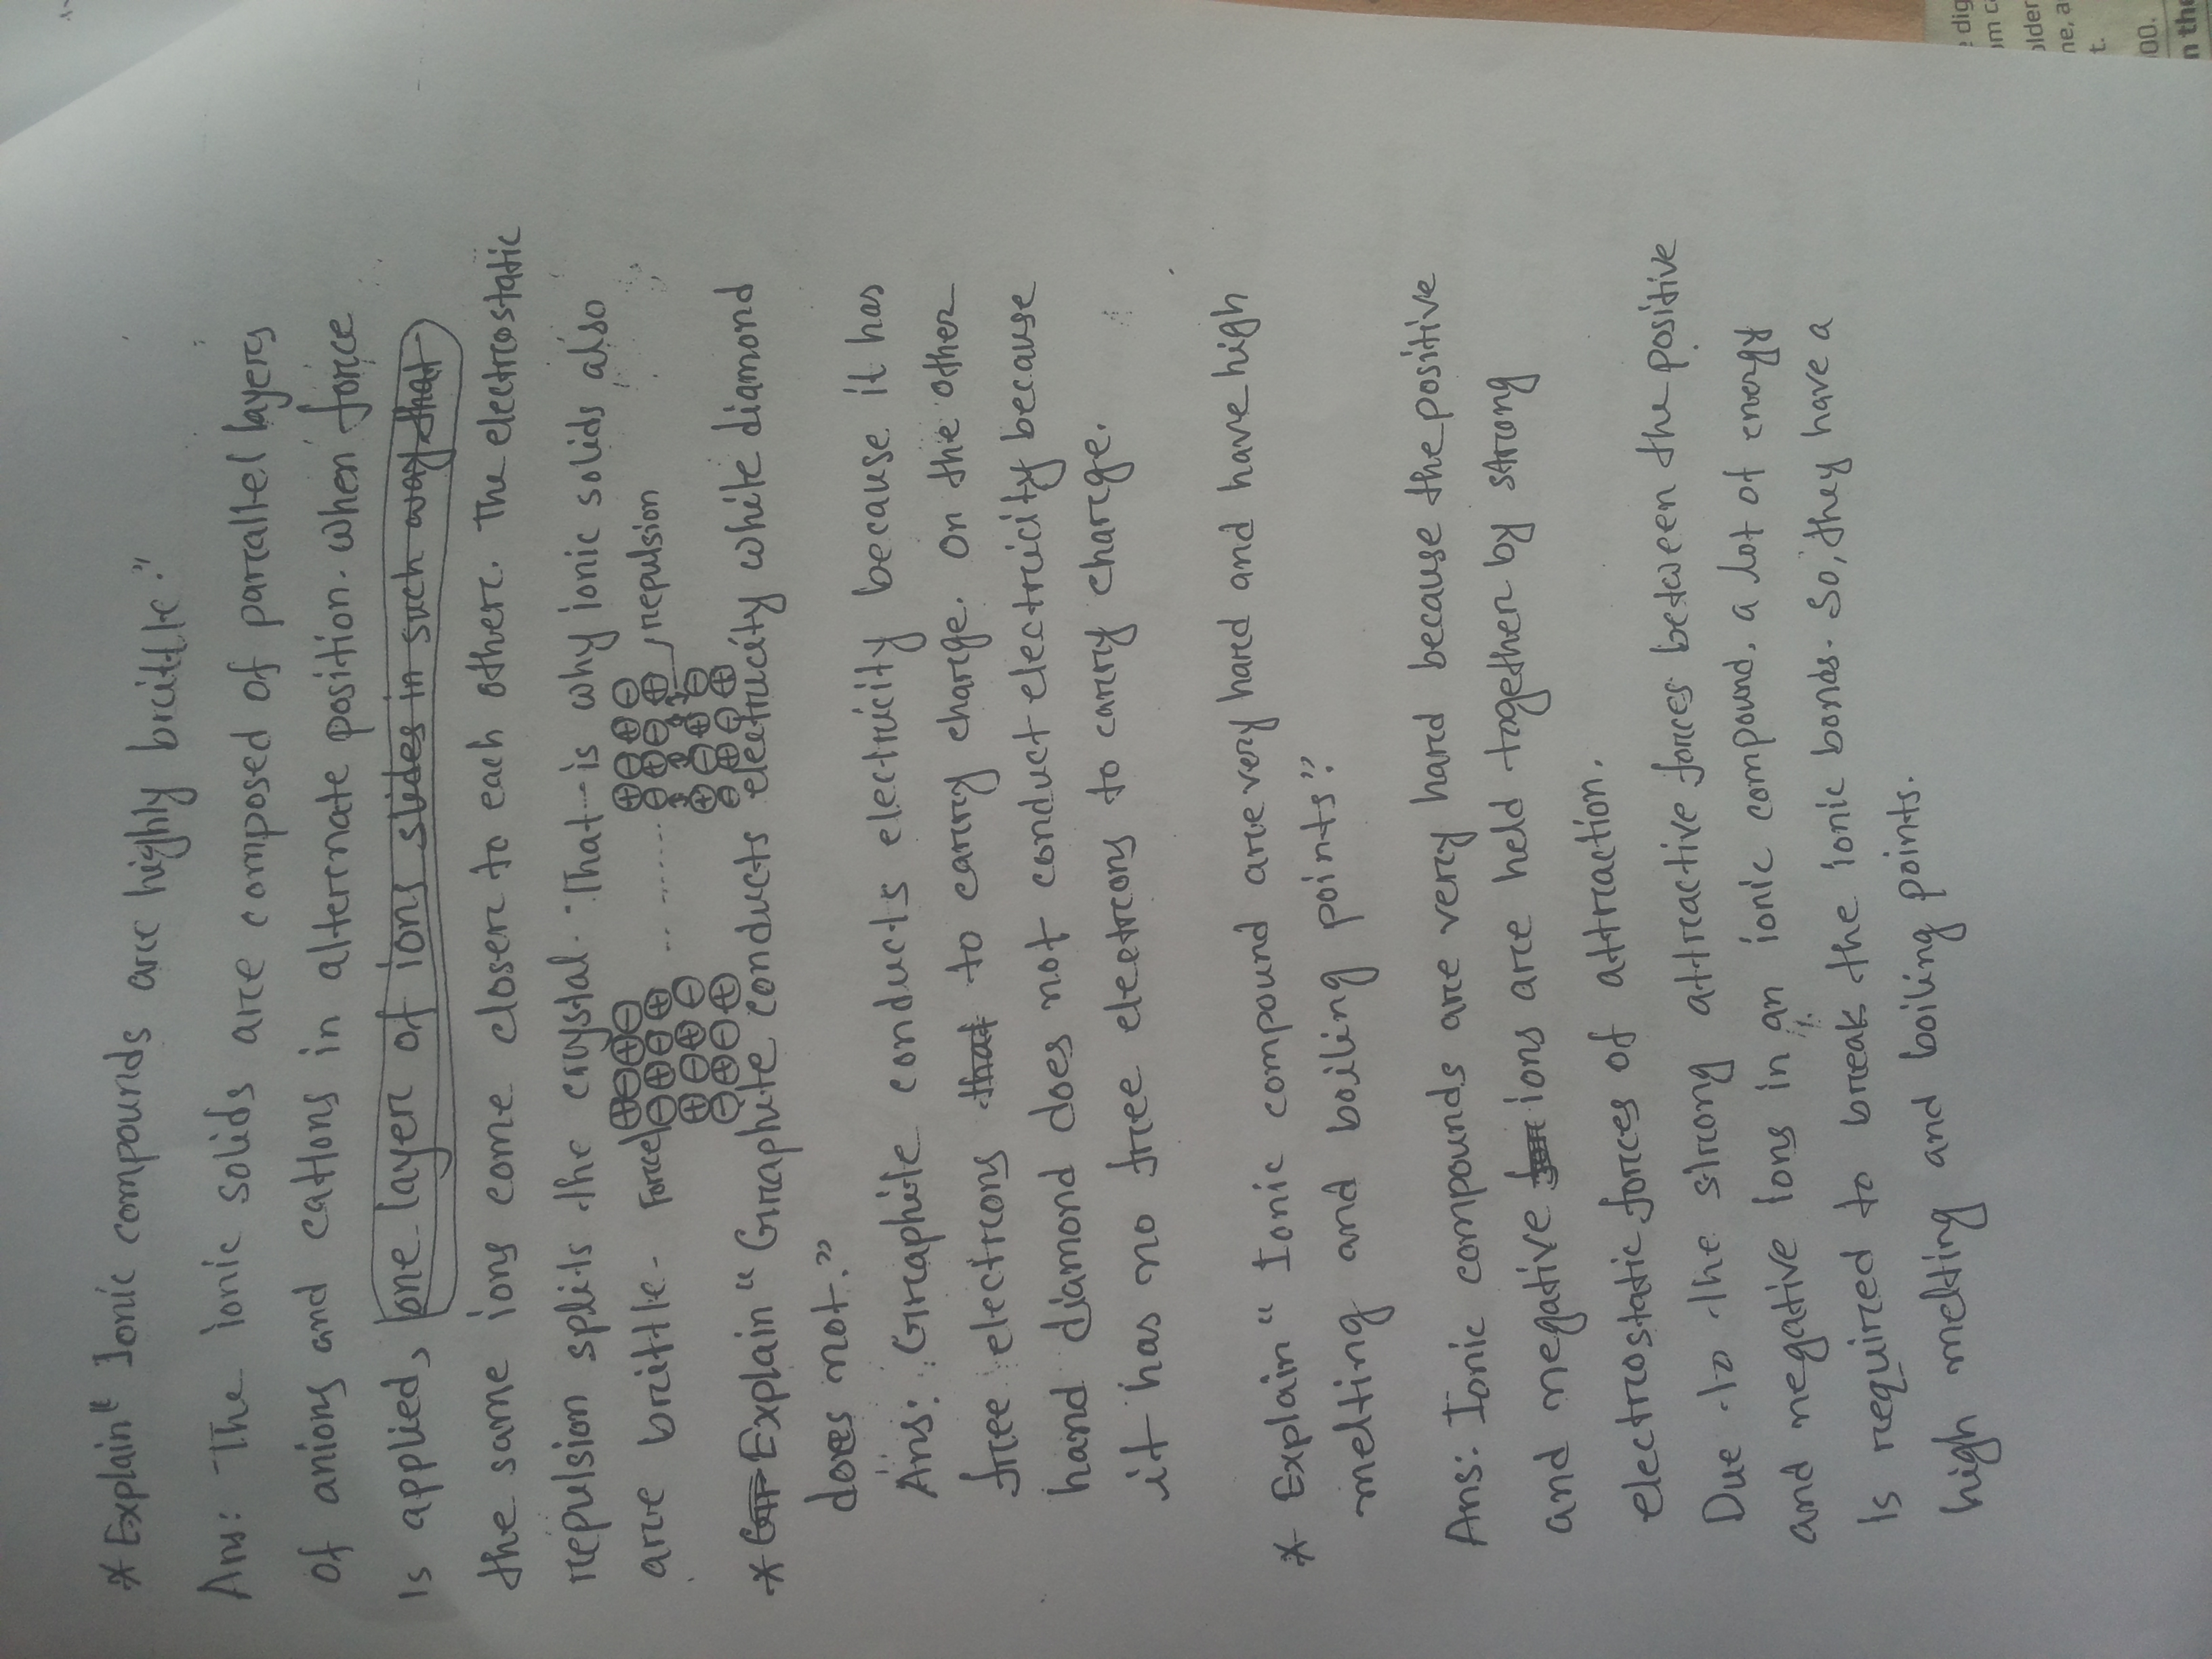 * Explain" Ionic compounds are highly brittle."
Ans: The ionic solids are composed of parallel layers
of anions and cations in alternate position. when force
is applied, one layer of ions slides in such way that
the same ions come closer to each other. The electrostatic
repulsion splits the crystal. That is why ionic solids also
are brittle.
Force
⊕⊖⊕⊖
⊖⊕⊕⊕
⊕⊖⊕⊖
⊖⊕⊖⊕
.. ......
⊕⊖⊕⊖
⊖⊕⊖⊕
⊕⊖⊕⊖
⊖⊕⊖⊕
repulsion
* Explain" Graphite conducts electricity while diamond
does not."
Ans: Graphite conducts electricity because it has
free electrons that to carry charge. On the other
hand diamond does not conduct electricity because
it has no free electrons to carry charge.
* Explain" Ionic compound are very hard and have high
melting and boiling points"?
Ans: Ionic compounds are very hard because the positive
and negative ions are held together by strong
electrostatic forces of attraction.
Due to the strong attractive forces between the positive
and negative ions in an ionic compound, a lot of energy
is required to break the ionic bonds. So, they have a
high melting and boiling points.
e dig
om c
older
ne, a
t.
00.
n the